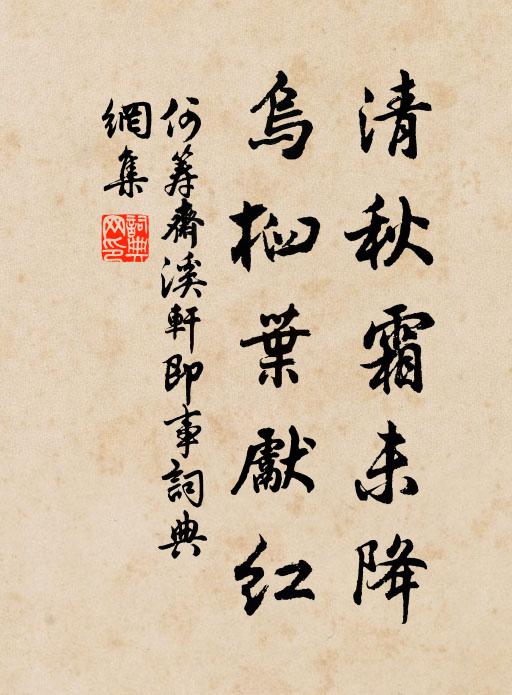 清秋霜未降
烏桕葉獻紅
何籌齋溪軒即事詞典
網集
詞典
網印